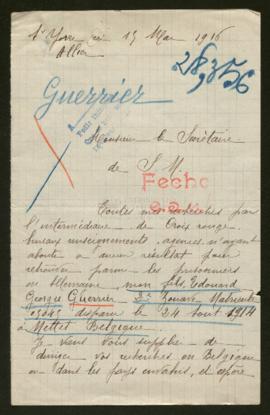 St Yorre ce 15 Mai 1916
Allier
28,356
Guerrier
Monsieur le Secrétaire
de S. M.
Fecho
Toutes mes recherches par
l'intermédiaire de Croix rouge
bureau renseignements, agences, n'ayant
aboutie a aucun résultat pour
retrouver parmi les prisonniers
en Allemagne mon fils Edouard
Georges Guerrier 2e Zouave Matricule
13043 disparu le 24 aout 1914
a Mettet Belgique.
Je vous supplie de
vos recherches en Belgique
ou dans les pays envahis, et espère